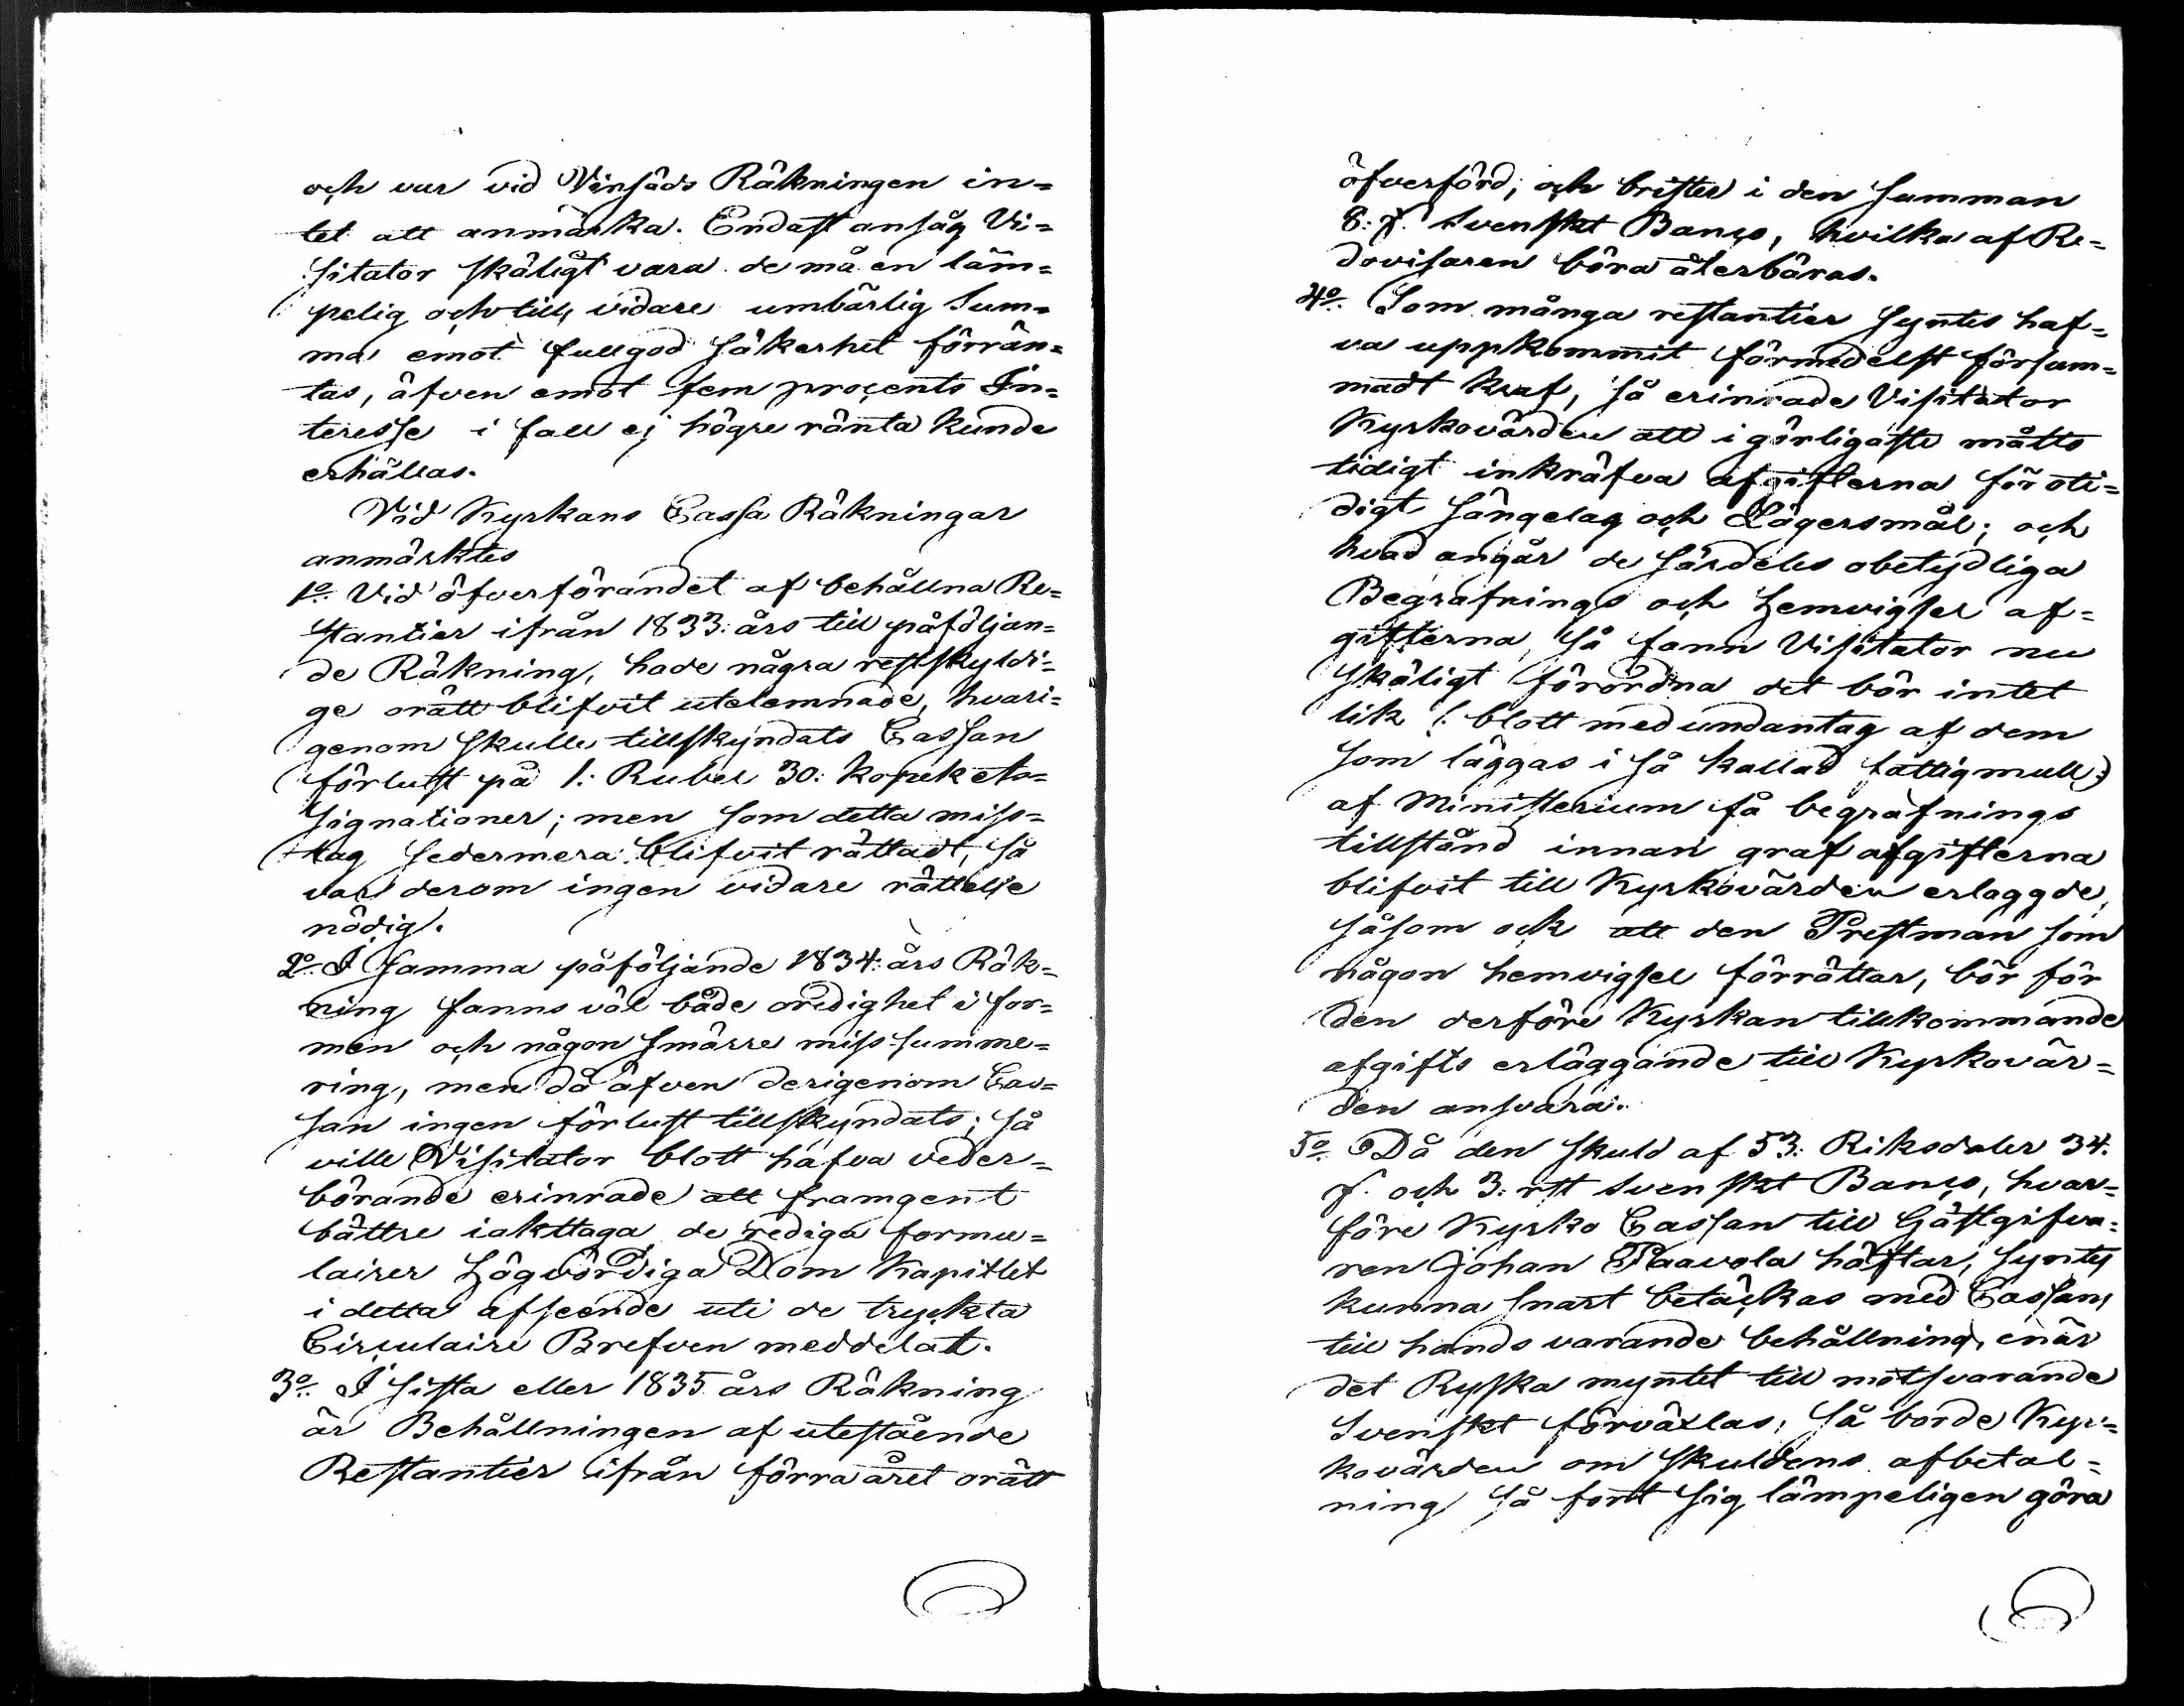 och var vid Vinsäds Räkningen in=
tet att anmärka. Endast ansåg Vi=
sitator skäligt vara de må en läm=
pelig och till vidare umbärlig Sum=
ma emot fullgod säkerhet förrän=
tas, äfven emot fem procents In=
teresse i fall ej högre ränta kunde
erhållas.
Vid Kyrkans Cassa Räkningar
anmärktes
1o. Vid öfverförandet af behållna Re=
stantier ifrån 1833: års till påföljan=
de Räkning, hade några restskyldi=
ge orätt blifvit utelemnade, hvari=
genom skulle tillskyndats Cassan
förlust på 1: Rubel 30: kopek As=
signationer; men som detta miss=
tag sedermera blifvit rättadt, så
var derom ingen vidare rättelse
nödig.
2o. I samma påföljande 1834: års Räk=
ning fanns väl både oredighet i for=
men och någon smärre miss-summe=
ring, men då äfven derigenom Cas=
san ingen förlust tillskyndats; så
ville Visitator blott hafva veder=
börande erinrade att framgent
bättre iakttaga de rediga formu=
lairer Högvördiga Dom Kapitlet
i detta afseende uti de tryckta
Circulaire Brefven meddelat.
3o. I sista eller 1835 års Räkning
är Behållningen af utestående
Restantier ifrån förra året orätt
öfverförd; och brister i den summan
8: ſ. Svenskt Banco, hvilka af Re=
dovisaren böra återbäras.
4o. Som många restantier syntes haf=
va uppkommit förmedelst försum=
madt kraf, så erinrade Visitator
Kyrkovärden att i görligaste måtto
tidigt inkräfva afgifterna för oti=
digt sängelag och Lägersmål; och
hvad angår de särdeles obetydliga
Begrafnings och Hemvigsel af=
gifterna, så fann Visitator nu
skäligt förordna det bör intet
lik (: blott med undantag af dem
som läggas i så kallad fattigmull:)
af Ministerium få begrafnings
tillstånd innan grafafgifterna
blifvit till Kyrkovärden erlaggde,
såsom ock att den Prestman som
någon hemvigsel förrättar, bör för
den derföre Kyrkan tillkommande
afgifts erläggande till Kyrkovär=
den ansvara.
5o. Då den skuld af 53: Riksdaler 34.
ſ. och 3: rst Svenskt Banco, hvar=
före Kyrko Cassan till Gästgifva=
ren Johan Paavola häftar, syntes
kunna snart betäckas med Cassans
till hands varande behållning, enär
det Ryska myntet till motsvarande
Svenskt förväxlas; så borde Kyr=
kovärden om skuldens afbetal=
ning så fort sig lämpeligen göra